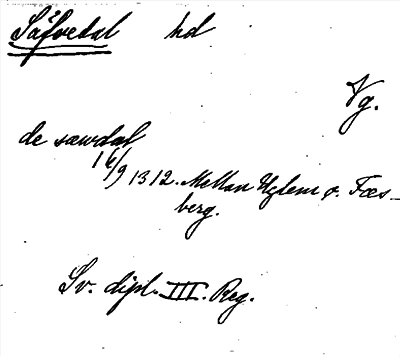 Såfvedal hd
Vg.
de sæwdal
16/9 1312. Mellan Uglem o. Fæs-
berg.
Sv. dipl. III. Reg.